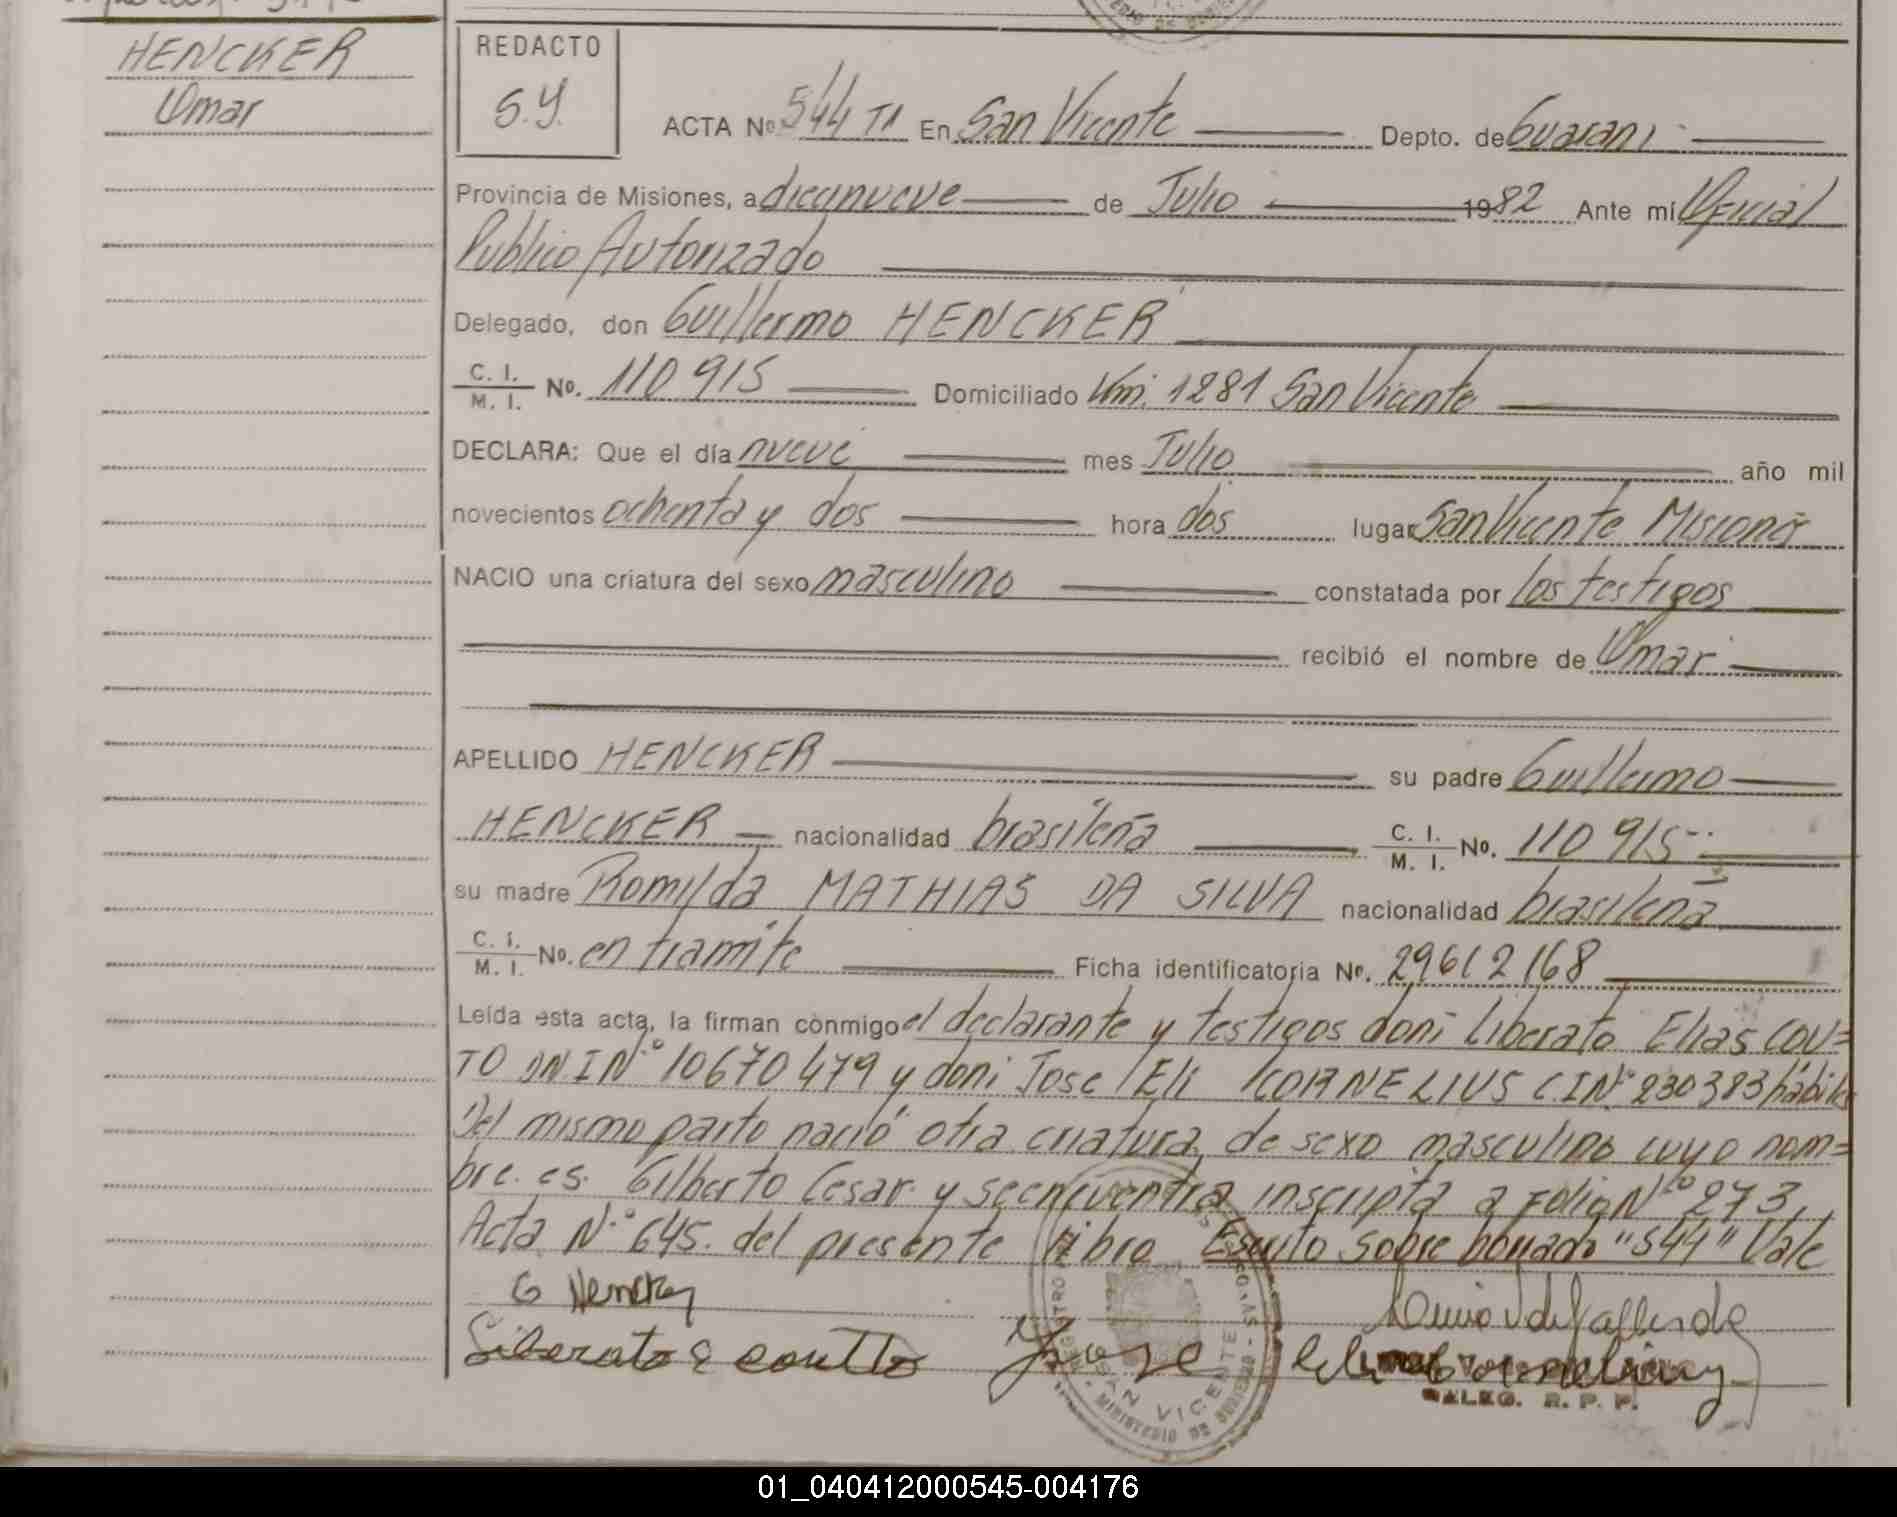 HENCKER
Omar
REDACTO
S.Y.
ACTA Nº 544 T1 En San Vicente Depto. de Guarani
Provincia de Misiones, a diecinueve de Julio 1982 Ante mí Oficial
Publico Autorizado
Delegado, don Guillermo HENCKER
C. I. / M. I. Nº. 110 915 Domiciliado Km. 1281 San Vicente
DECLARA: Que el día nueve mes Julio año mil
novecientos ochenta y dos hora dos lugar San Vicente Misiones
NACIO una criatura del sexo masculino constatada por los testigos
recibió el nombre de Omar
APELLIDO HENCKER su padre Guillermo
HENCKER nacionalidad brasileña C. I. / M. I. Nº. 110 915
su madre Romilda MATHIAS DA SILVA nacionalidad brasileña
C. I. / M. I. Nº. en tramite Ficha identificatoria Nº. 29612168
Leída esta acta, la firman conmigo el declarante y testigos don: Liberato Elias COU=
TO DNI Nº 10670479 y don: Jose Eli CORNELIUS C.I Nº 230383 hábiles
Del mismo parto nació otra criatura de sexo masculino cuyo nom=
bre es. Gilberto Cesar y se encuentra inscripta a Folio Nº 273,
Acta Nº 645. del presente Libro Escrito sobre borrado "544" Vale
G Hencker
Liberato E Coutto Jose Eli Cornelius
SAN VICENTE
MINISTERIO DE GOBIERNO
DELEG. R. P. P.
01_040412000545-004176